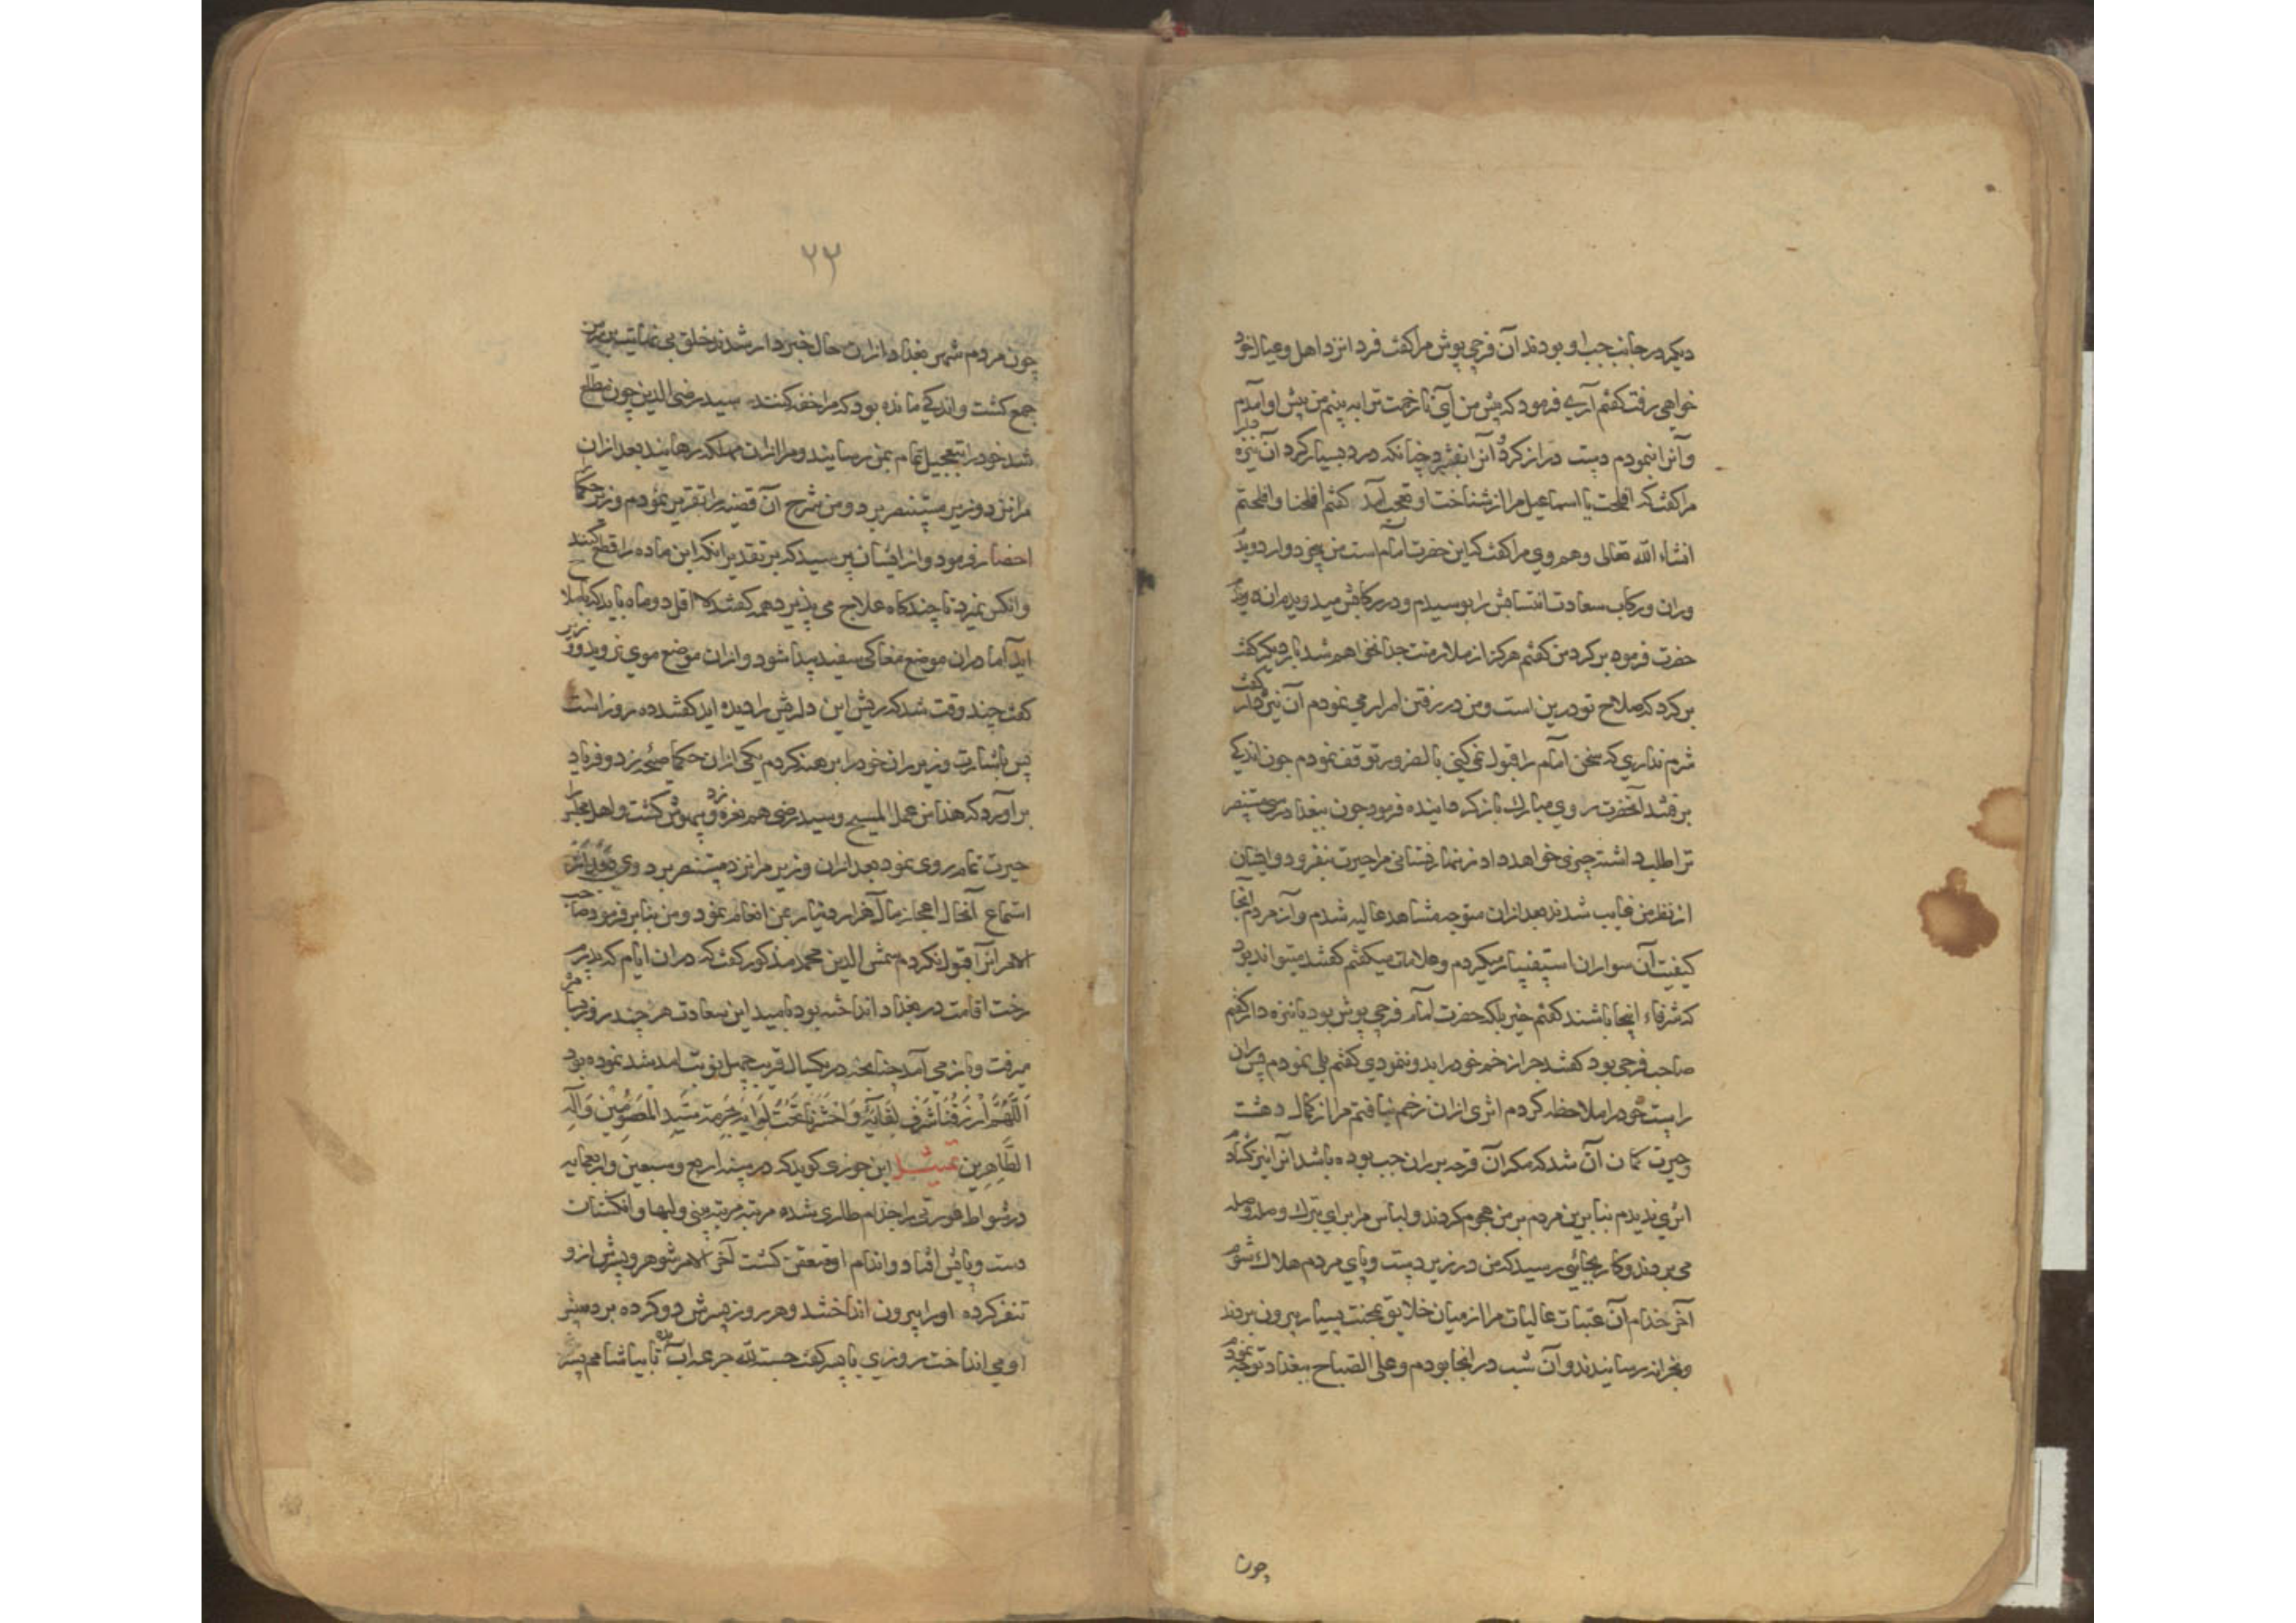 دیکر در جانب چب او بودند آن فرجی پوش مرا کفت فردا نزد اهل و عیال خود
خواهی رفت کفتم آری فرمود که پیش من آی تا زخمت ترا به بینم من پیش او آمدم
و آنرا نمودم دست دراز کرد و آنرا بفشرد چنانکه درد بسیار کرد آن نیزه دار
مرا کفت که افلحت یا اسماعیل مرا از شناخت او تعجب آمد کفتم افلحنا و افلحتم
انشاء الله تعالی و هم وی مرا کفت که این حضرت امام است من بیخود وار دویدم
وران و رکاب سعادت انتسابش را بوسیدم و در رکابش میدویدم
حضرت فرمود برکرد من کفتم هرکز از ملازمتت جدا نخواهم شد بار دیکر کفت
برکرد که صلاح تو درین است و من در رفتن اصرار می نمودم آن نیزه دار کفت
شرم نداری که سخن امام را قبول نمی کنی بالضرور توقف نمودم چون اندکی
برفتند آنحضرت روی مبارک باز کردانیده فرمود چون ببغداد رسی مستنصر
ترا طلب داشته چیزی خواهد داد زنهار نستانی مرا حیرت بیفزود و ایشان
از نظر من غایب شدند بعد ازان متوجه مشاهد عالیه شدم و از مردم آنجا
کیفیت آن سواران استفسار میکردم و علامات میکفتم کفتند میتواند بود
که شرفاء اینجا باشند کفتم خیر بلکه حضرت امام فرجی پوش بود یا نیزه دار کفتم
صاحب فرجی بود کفتند چرا زخم خود را بدو ننمودی کفتم بلی نمودم پس ران
راست خود را ملاحظه کردم اثری ازان زخم نیافتم مرا از کمال دهشت
و حیرت کمان آن شد که مکر آن قرحه بر ران چب بوده باشد آنرا نیز کشادم
اثری ندیدم بنابرین مردم بر من هجوم کردند و لباس مرا برای تبرک وصله وصله
می بردند و کار بجائی رسید که من در زیر دست و پای مردم هلاک شوم
آخر خدام آن عتبات عالیات مرا از میان خلایق بمحنت بسیار بیرون بردند
و بخزانه رسانیدند و آن شب در انجا بودم و علی الصباح ببغداد توجه نمودم
چون
۲۲
چون مردم شهر بغداد ازان حال خبردار شدند خلق بی نهایت بر سر من
جمع کشت و اندکی مانده بود که مرا خفه کنند سید رضی الدین چون مطلع
شد خود را بتعجیل تمام بمن رسانید و مرا ازان مهلکه رهانید بعد ازان
مرا نزد وزیر مستنصر برد و من شرح آن قضیه را تقریر نمودم وزیر حکما
احضار فرمود و از ایشان پرسید که بر تقدیر آنکه این ماده را قطع کنند
و انکس نمیرد تا چندکاه علاج می پذیرد همه کفتند لا اقل دو ماه باید که باصلاح
آید اما دران موضع مغاکی سفید پیدا شود و ازان موضع موی نروید وزیر
کفت چند وقت شد که ریش این دلریش را دیده اید کفتند ده روز است
پس باشارت وزیر ران خود را برهنه کردم یکی ازان حکما صیحه زد و فریاد
برآورد که هذا من عمل المسیح و سید رضی هم نعره زد و بیهوش کشت و اهل مجلس را
حیرت تمام روی نمود بعد ازان وزیر مرا نزد مستنصر برد و وی بعد از
استماع آنحال اعجاز مآل هزار دینار بمن انعام نمود و من بنابر فرموده صاحب
الامر آنرا قبول نکردم شمس الدین محمد مذکور کفت که دران ایام که پدرم
رخت اقامت در بغداد انداخته بود بامید این سعادت هر چند روز بسامره
میرفت و باز می آمد چنانچه در یکسال قریب چهل نوبت آمد شد نموده بود
اَللّهُمَّ ارْزُقْنا شَرَفَ لِقائِهِ وَ احْشُرْنا تَحْتَ لِوائِهِ بِحُرْمَةِ سَيِّدِ الْمَعْصُومِينَ وَ آلِهِ
الطّاهِرِين تمثیل ابن جوزی کوید که در سنه اربع و سبعین و اربعمایه
در شواط عورتی را جذام طاری شده مرتبه مرتبه بینی و لبها و انکشتان
دست و پایش افتاد و اندام او متعفن کشت آخر الامر شوهر و پسرش ازو
تنفر کرده او را بیرون انداختند و هر روز پسرش دو کرده بر دستر
او می انداخت روزی با پسر کفت حسبة لله جرعه آب ده تا بیاشامم پسر